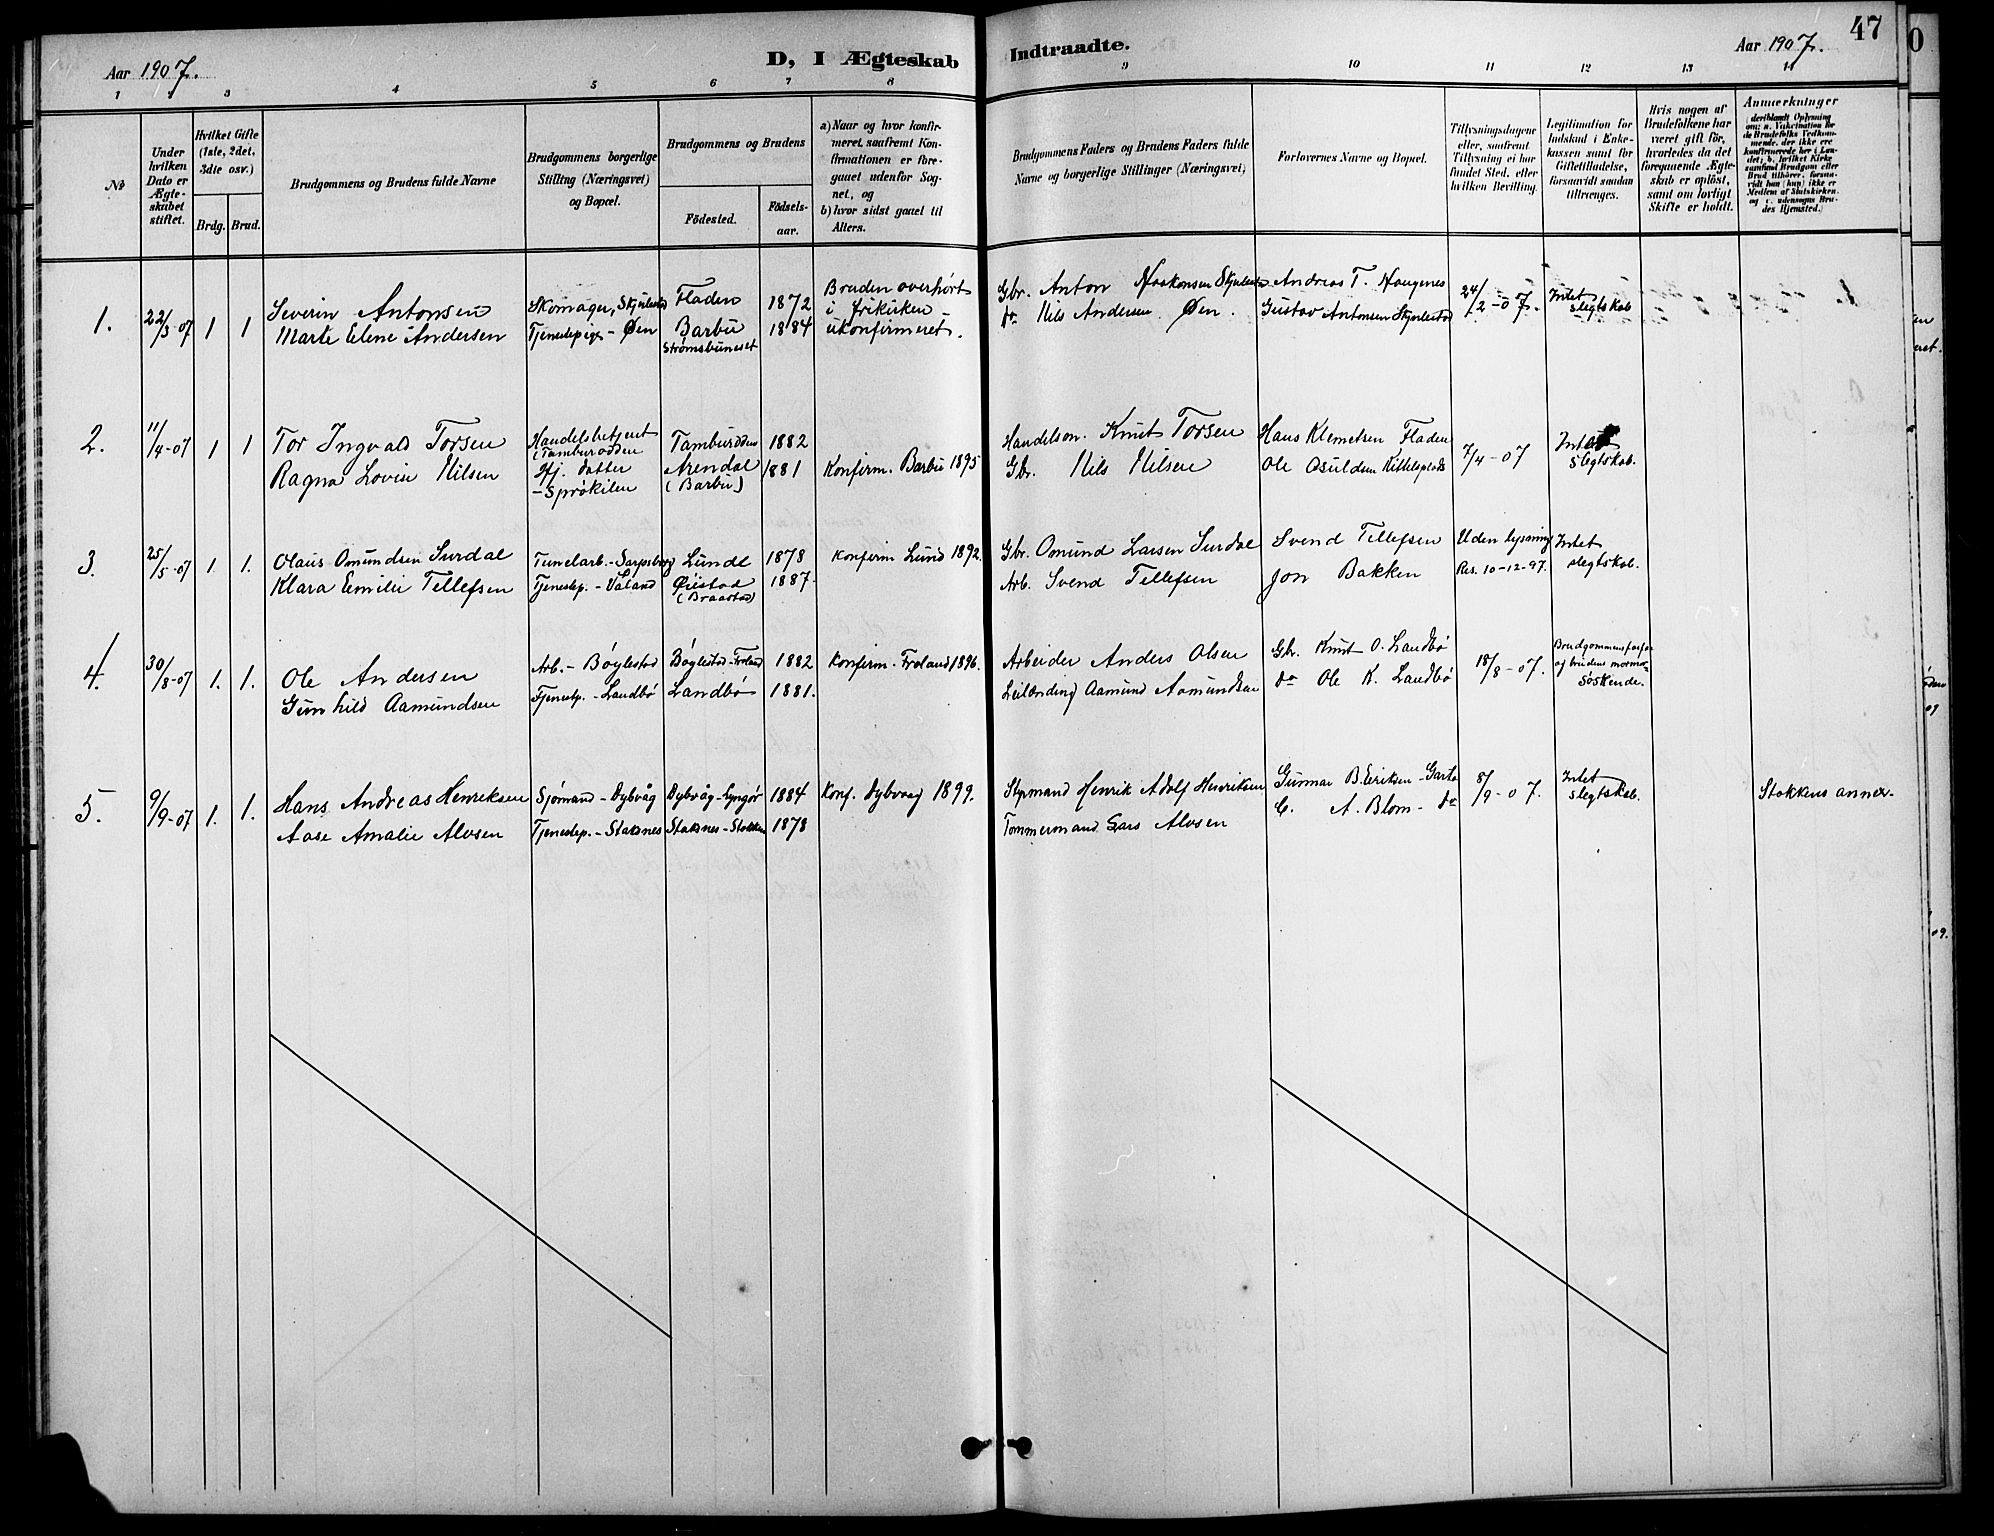 47
Aar 1907.
D, I Ægteskab
Indtraadte.
Aar 1907.
1 2 3 4 5 6 7 8
9 10 11 12 13 14
№
Under hvilken Dato er Ægteskabet stiftet.
Hvilket Gifte (1ste, 2det, 3die osv.)
Brdg. Brud.
Brudgommens og Brudens fulde Navne
Brudgommens borgerlige Stilling (Næringsvei) og Bopæl.
Brudgommens og Brudens
Födested.
Födselsaar.
a) Naar og hvor konfirmeret, saafremt Konfirmationen er foregaaet udenfor Sognet, og
b) hvor sidst gaaet til Alters.
Brudgommens Faders og Brudens Faders fulde Navne og borgerlige Stillinger (Næringsvei)
Forlovernes Navne og Bopæl.
Tillysningsdagene eller, saafremt Tillysning ei har fundet Sted, efter hvilken Bevilling.
Legitimation for Indskud i Enkekassen samt for Giftetilladelse, forsaavidt saadan tiltrænges.
Hvis nogen af Brudefolkene har været gift før, hvorledes da det foregaaende Ægteskab er oplöst, samt om lovligt Skifte er holdt.
Anmærkninger (deriblandt Oplysning om: a. Vakcination for de Brudefolks Vedkommende, der ikke ere konfirmerede her i Landet; b. hvilket Kirkesamfund Brudgom eller Brud tilhörer, forsaavidt han (hun) ikke er Medlem af Statskirken, og c. udensogns Brudes Hjemsted.)
1. 22/3-07 1 1 Severin Antonsen Skomager, Skjulestad Fladen 1872 Bruden overhørt
Marte Elene Andersen Tjenestepige - Øen Barbu 1884 i frikirken -
Strømsbuneset ukonfirmeret.
Gbr. Anton Haakonsen Skjulestad Andreas T. Haugenes 24/2-07. Intet
do Nils Andersen Øen. Gustav Antonsen Skjulestad slegtskab
2. 11/4-07 1 1 Tor Ingvald Torsen Handelsbetjent Tamburodden 1882
(Tamburodden
Ragna Lovise Nilsen Hj. datter Arendal 1881 Konfirm. Barbu 1895
- Sprøkilen (Barbu)
Handelsm. Knut Torsen Hans Klemetsen Fladen 7/4-07 Intet
Gbr. Nils Nilsen Ole Osuldsen Kittelsplads slegtskab.
3. 25/5-07 1. 1. Olaus Omundsen Surdal Tunelarb. - Sarpsborg Lunde 1878 Konfirm Lund 1892.
Klara Emilie Tellefsen Tjenestep. - Valand Øiestad 1887.
(Braastad)
Gbr. Omund Larsen Surdal Svend Tellefsen Uden lysning Intet
Arb. Svend Tellefsen Jon Bakken Res. 10-12-97. slegtskab.
4. 30/8-07 1. 1. Ole Andersen Arb. - Bøylestad Bøylestad - Froland 1882 Konfirm. Froland 1896.
Gunhild Aamundsen Tjenestp. - Landbø Landbø 1881.
Arbeider Anders Olsen Gbr. Knut O. Landbø 18/8-07. Brudgommens farfar
Leilænding Aamund Aamundsen do Ole K. Landbø og brudens mormor
søskende.
5. 9/9-07 1. 1. Hans Andreas Henriksen Sjømand - Dybvåg Dybvåg - Lyngør 1884 Konf. Dybvaag 1899.
Aase Amalie Alvsen Tjenestep. - Staksnes Staksnes - Stokken 1878
Styrmand Henrik Adolf Henriksen Gunnar B. Eriksen - Garta 8/9-07. Intet Stokkens annex.
Tømmermand Lars Alvsen C. A. Blom - do slegtskab.